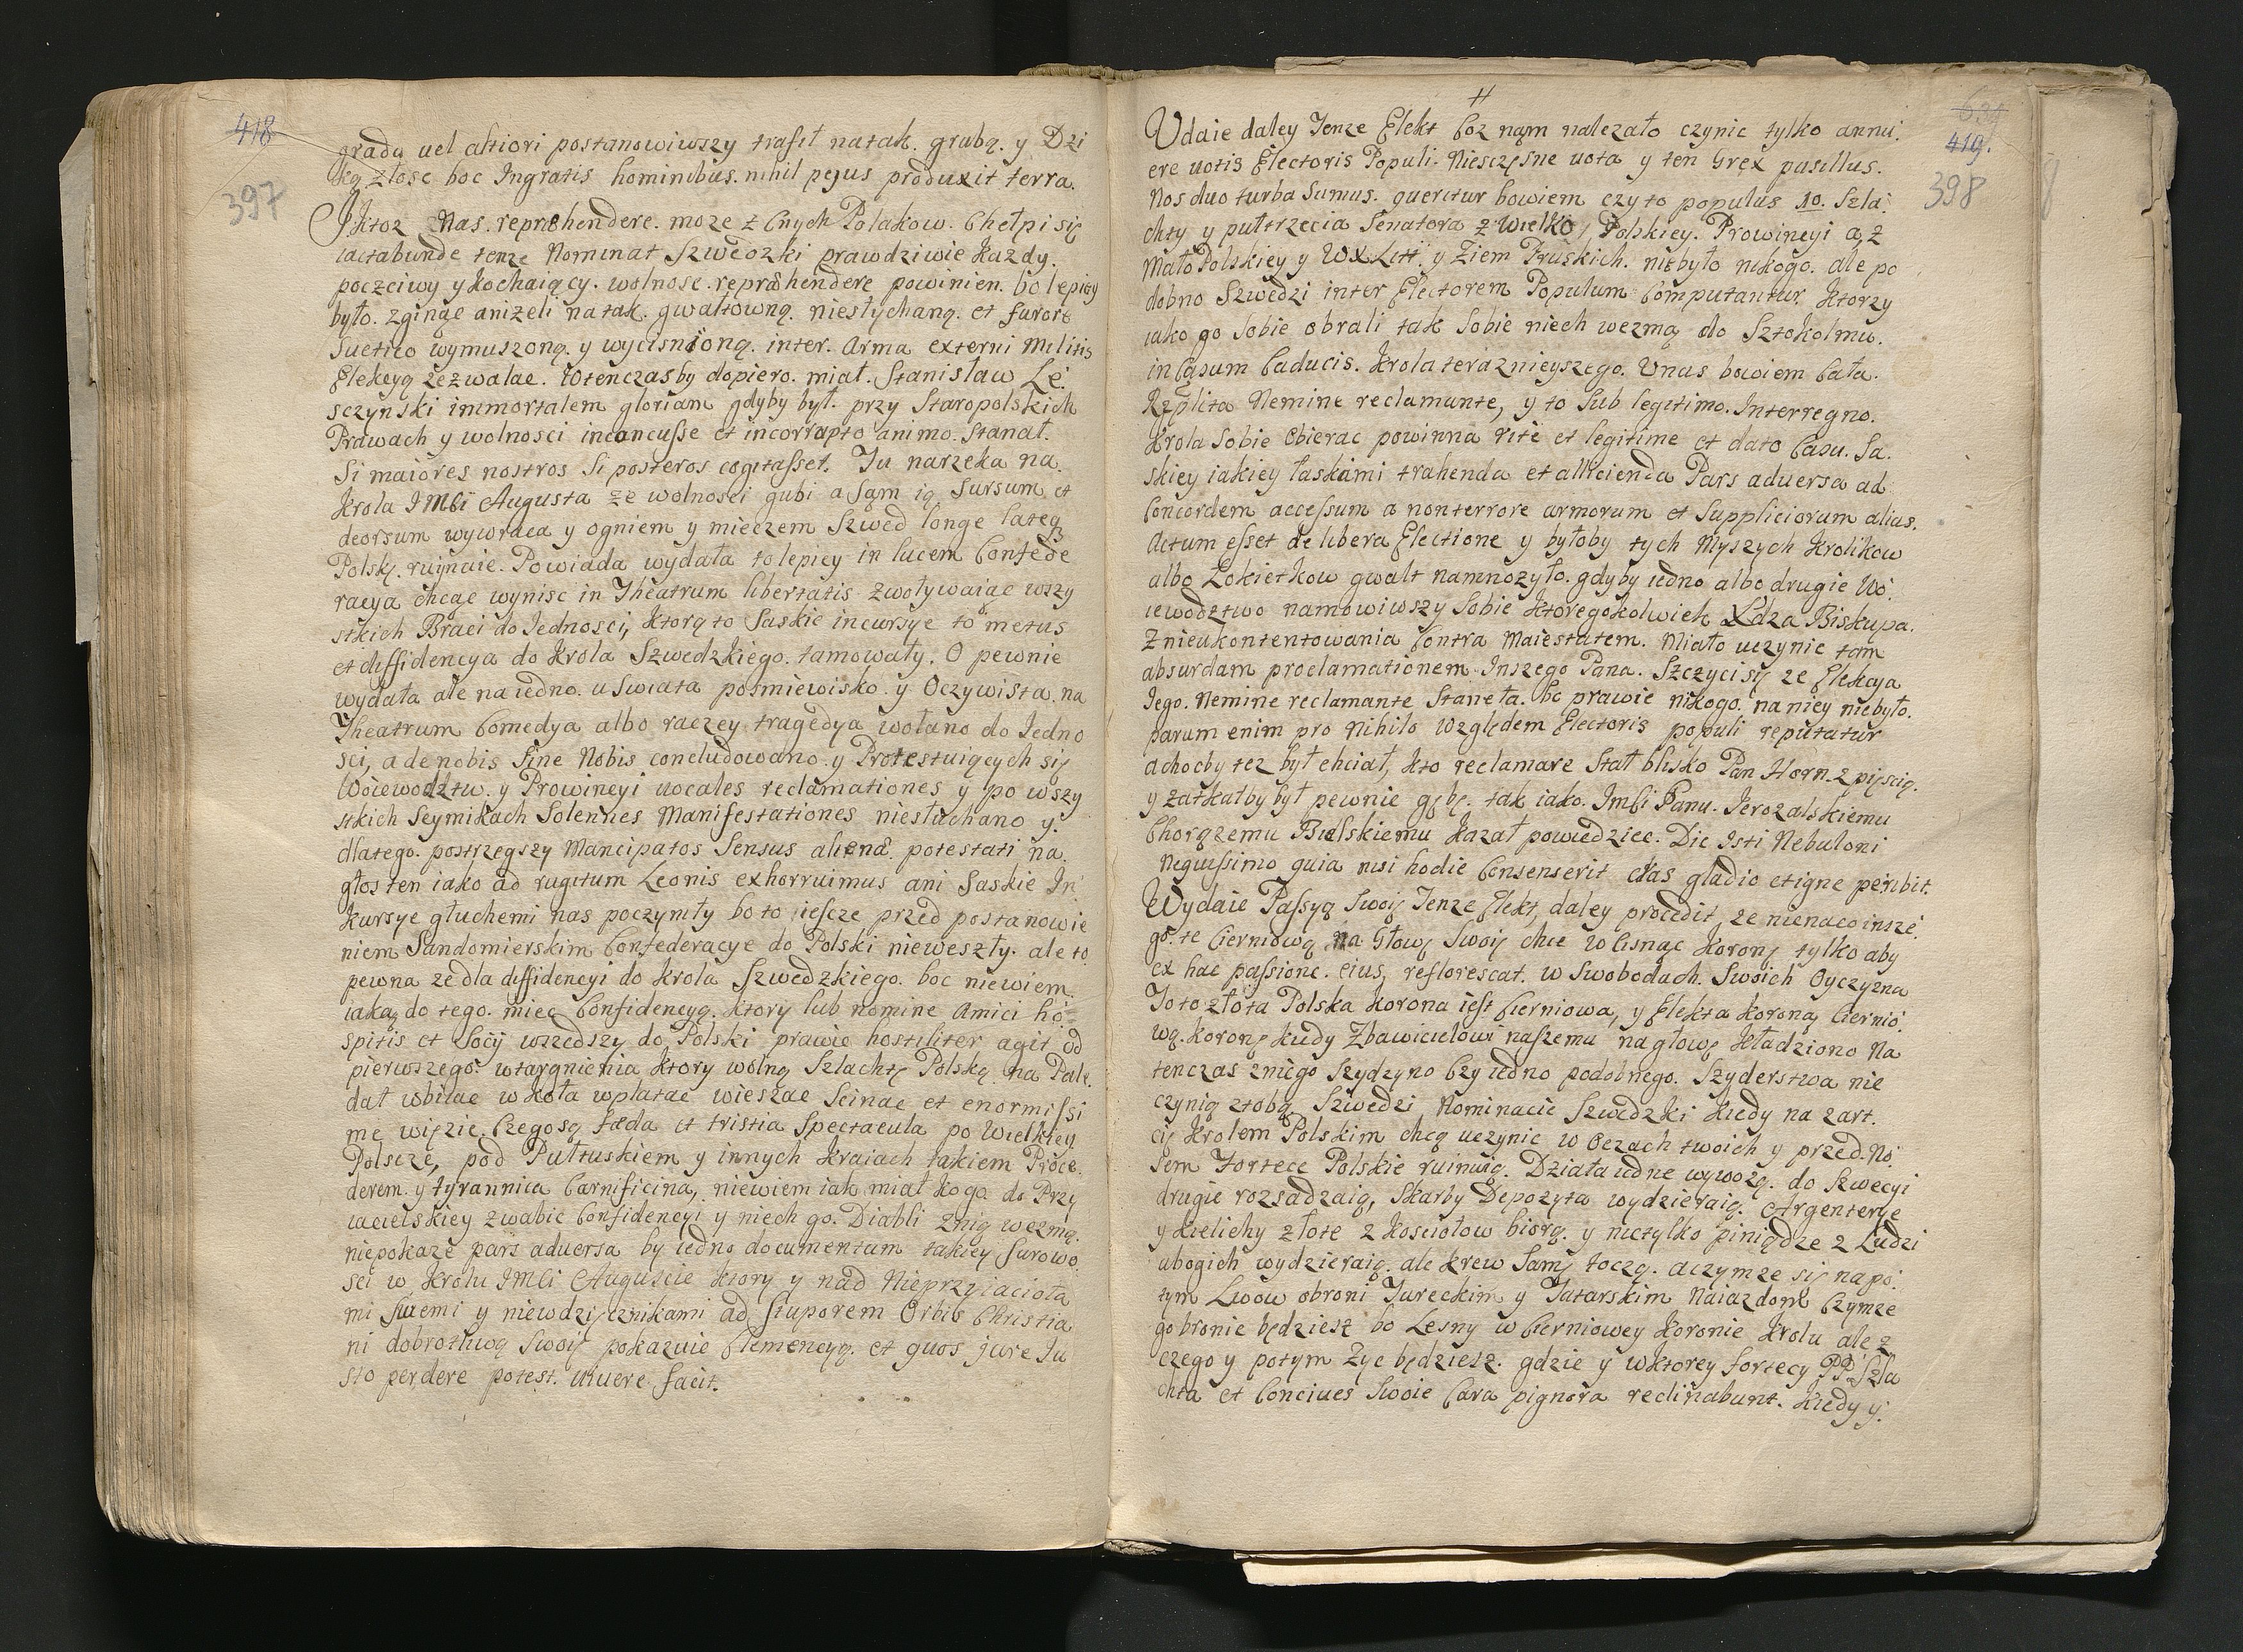 418
397
gradu uel altiori postanowiwszy trafił natak. grubą. y Dzi
ką złosc boc Ingratis hominibus. nihil pejus produxit terra.
Iktoz Nas. reprehendere. moze z Cnych Polakow. Chełpi się
iactabunde tenze Nominat Szwedzki prawdziwie kazdy.
poczciwy y kochaiący. wolnosc. reprehendere powinien. bo lepiey
było. zginąc anizeli natak. gwałtowną. niesłychaną. et furore
Suetico wymuszoną. y wycisnioną. inter. Arma externi Militis
Elekcyą zezwalac. Wtenczasby dopiero. miał. Stanisław Le.
sczynski immortalem gloriam gdyby był. przy Staropolskich
Prawach y wolnosci inconcusse et incorrupto animo. Stanął.
Si maiores nostros Si posteros cogitasset. Tu narzeka na.
Krola IMCi Augusta ze wolnosci gubi a Sąm ią Sursum et
deorsum wywraca y ogniem y mieczem Szwed longe lateq
Polskę. ruinuie. Powiada wydała to lepiey in lucem Confede
racya chcąc wynisc in Theatrum libertatis zwoływaiąc wszy
stkich Braci do Iednosci, ktorą to Saskie incursye to metus
et diffidencya do krola Szwedzkiego. tamowały. O pewnie
wydała ale na iedno. u Swiata posmiewisko. y Oczywista. na
Theatrum Comedya albo raczey tragedya wołano do Iedno
sci, a de nobis Sine Nobis concludowano. y Protestuiących się
Woiewodztw. y Prowincyi uocales reclamationes y po wszy
stkich Seymikach Solennes Manifestationes niesłuchano y.
dlatego. postrzegszy Mancipatos Sensus alienæ. potestati na.
głos ten iako ad rugitum Leonis exhorruimus ani Saskie In
kursye głuchemi nas poczyniły bo to iescze przed postanowie
niem Sandomierskim Confederacye do Polski nieweszły. ale to
pewna ze dla diffidencyi do krola Szwedzkiego. boc niewiem
iaką do tego. miec Confidencyą. ktory lub nomine Amici ho
spitis et Socij wszedszy do Polski prawie hostiliter agit od
pierwszego. wtargnienia ktory wolną Szlachtę Polską na Pale.
dał wbiiac w koła wplatac wieszac Scinac et enormissi
me więzic. Czego są fæda et tristia Spectacula po Wielkiey
Polscze, pod Pułtuskiem y innych kraiach takiem Proce.
derem. y tyrannica Carnificina, niewiem iak miał kogo do Przy
iacielskiey zwabic Confidencyi y niech go. Diabli znią wezmą.
niepokaze pars aduersa by iedno documentum takiey Surowo
sci w krolu IMCi Auguscie ktory y nad Nieprzyiacioła
mi Swemi y niewdzięcznikami ad Stuporem Orbis Christia
ni dobrotliwą Swoię pokazuie Clemencyą. et quos jure Iu
sto perdere potest. uiuere facit.
639
419.
398
Udaie daley Tenze Elekt Coz nąm nalezało czynic tylko annu.
ere uotis Electoris Populi. Niesczęsne uota y ten Grex pusillus.
Nos duo turba Sumus. queritur bowiem czy to populus 10. Szla.
chty y pułtrzecia Senatora z Wielko Polskiey. Prowincyi a z
Mało Polskiey y WXLitt. y Ziem Pruskich. niebyło nikogo. ale po
dobno Szwedzi inter Electorem Populum Computantur. ktorzy
iako go Sobie obrali tak Sobie niech wezmą do Sztokolmu.
in Casum Caducis. Krola teraznieyszego. Unus bowiem Cała.
Rzplita Nemine reclamante, y to Sub legitimo. Interregno.
Krola Sobie Obierac powinna rite et legitime et dato Casu. Sa.
skiey iakiey łaskami trahenda et allicienda Pars aduersa ad
Concordem accessum a nonterrore armorum et Suppliciorum alias.
Actum esset de libera Electione y byłoby tych Myszych krolikow
albo Łokietkow gwałt namnozyło. gdyby iedno albo drugie Wo.
iewodztwo namowiwszy Sobie ktoregokolwiek Xdza Biskupa.
Znieukontentowania Contra Maiestatem. Miało uczynic tąm
absurdam proclamationem. Inszego Pana. Szczyci się ze Elekcya
Iego. Nemine reclamante Staneła. bo prawie nikogo. na niey niebyło.
parum enim pro nihilo względem Electoris populi reputatur
a chocby tez był chciał, kto reclamare Stał blisko Pan Horn. z pięscią.
y zatkałby był pewnie gębę. tak iako. Imci Panu. Ierozalskiemu
Chorązemu Bielskiemu kazał powiedziec. Dic Isti Nebuloni
Nequissimo quia nisi hodie Consenserit cras gladio et igne peribit.
Wydaie Passyą Swoię Tenze Elekt, daley procedit, ze nienaco insze.
go. te Cierniową na Głowę Swoię chce wlisnąc koronę tylko aby
ex hac passione. eius, reflorescat. w Swobodach. Swoich Oyczyzna
Toto złota Polska korona iest Cierniowa, y Elekta koroną Cierniо.
wą. koronę kiedy Zbawicielowi naszemu nagłowę kładziono Na
tenczas zniego Szydzono Czy iedno podobnego. Szyderstwa nie
czynią ztobą. Szwedzi Nominacie Szwedzki kiedy na zart.
cię krolem Polskim chcą uczynic w Oczach twoich y przed. No.
sem Fortece Polskie ruinuią. Działa iedne wywozą. do Szwecyi
drugie rozsadzaią, Skarby Depozyta wydzieraią. Argenterye
y kielichy złote z kosciołow biorą. y nietylko piniądze z Ludzi
ubogich wydzieraią. ale krew Samę toczą. aczymze się napo.
tym Lwow obroni Tureckim y Tatarskim Naiazdom Czymze
go bronic będziesz bo Lesny w Cierniowey koronie krolu ale z
czego y potym zyc będziesz. gdzie y wktorey fortecy PP. Szla
chta et Conciues Swoie Cara pignora reclinabunt. kiedy y.